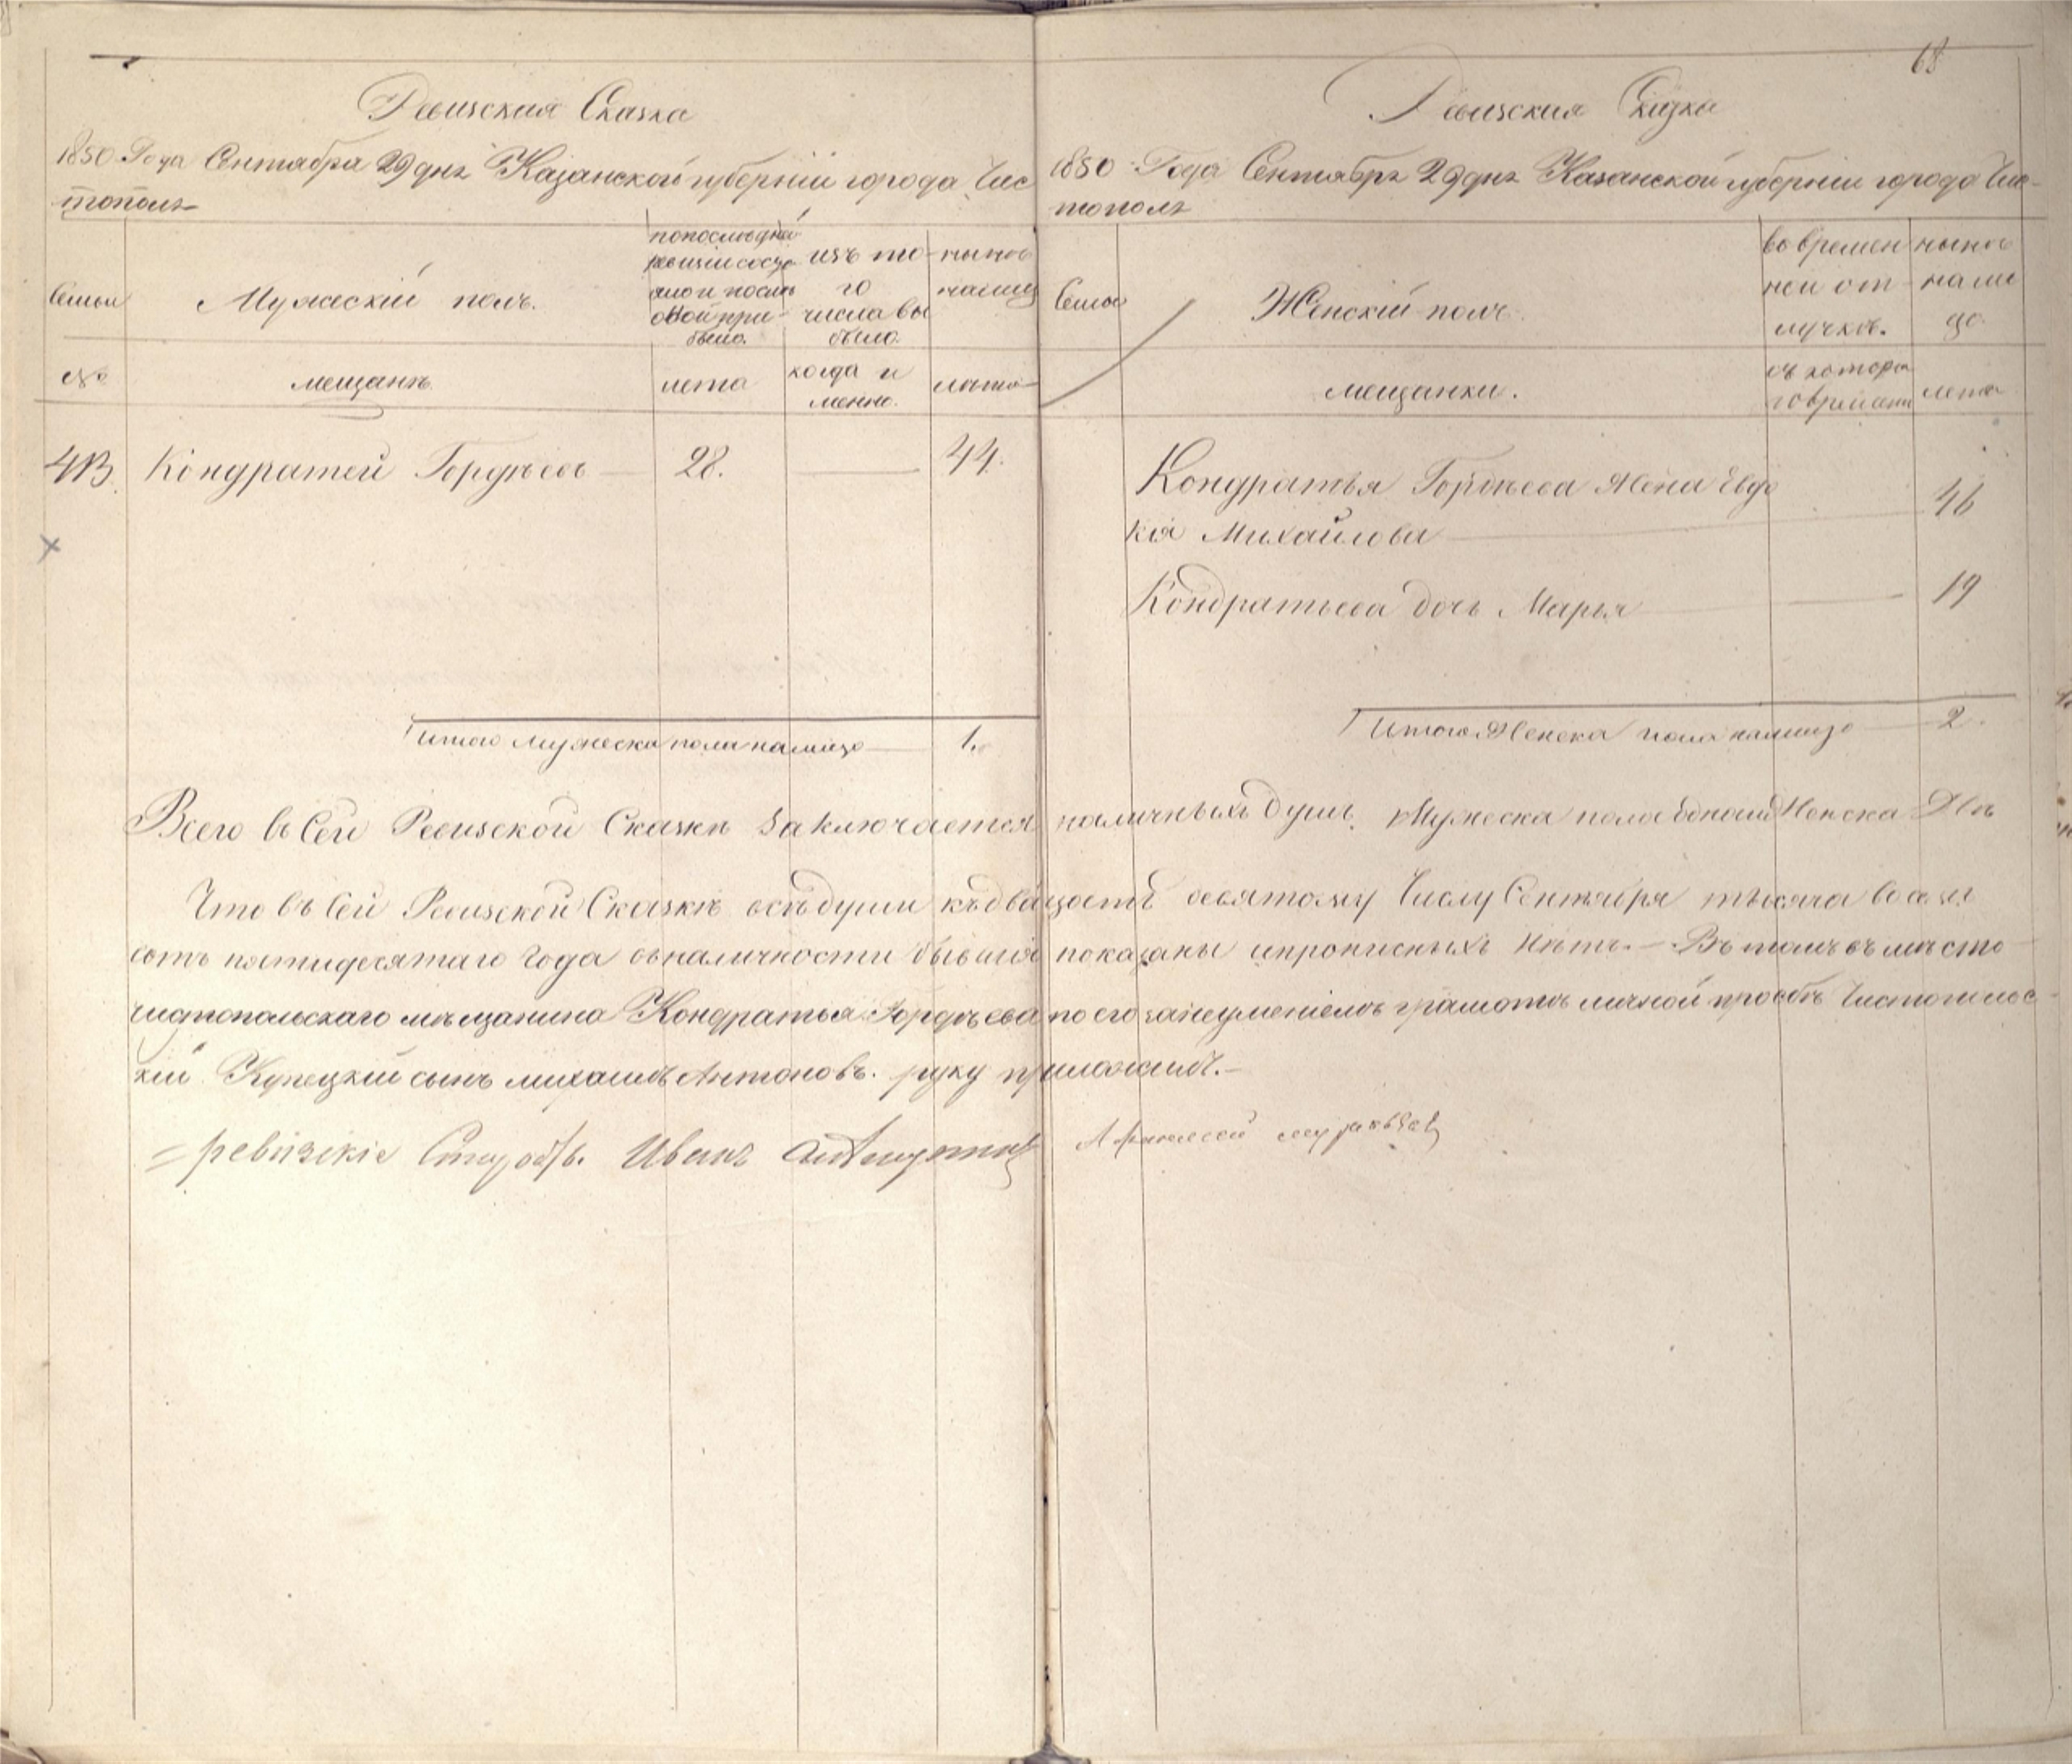 68
Ревизская Сказка
1850 Года Сентября 29 дня Казанской губерніи города Чис
тополя
Семьи
Мужескій полъ.
по последней
ревизіи состо
яло и после
оной при
было.
изъ то
го
числа вы
было.
ныне
налицо
№
мещанъ.
лета
когда и
менно.
лета
4В. Кондратей Гордѣевъ 28. 44.
Итого мужеска пола налицо 1.
Ревизская Сказка
1850 Года Сентября 29 дня Казанской губерніи города Чис-
тополя
Семьи
Женскій полъ.
во времен
ней от-
лучкѣ.
ныне
нали
цо.
мещанки.
съ котора
го времени
лета
Кондратья Гордѣева жена Евдо
кія Михайлова 46
Кондратьева дочь Марья 19
Итого Женска пола налицо 2.
Всего въ Сей Ревизской Сказкѣ заключается наличныхъ душъ Мужеска пола Женска Двѣ
Что въ Сей Ревизской Сказкѣ всѣ души къ двадцать девятому Числу Сентября тысяча восем
сотъ пятидесятаго Года въ наличности бывшія показаны и прописныхъ нѣтъ.— Въ томъ въ мѣсто
чистопольскаго мѣщанина Кондратья Гордѣева по его за неуменіемъ грамотѣ личной просьбѣ Чистопольс-
кій Купецкій сынъ Михаилъ Антоновъ. руку приложилъ.—
ревизскіе Иванъ